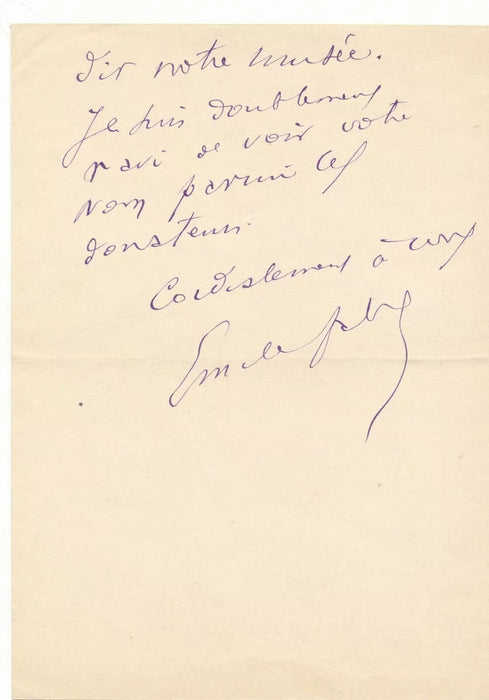 dir notre musée.
Je suis doublement
ravi de voir votre
nom parmi les
donateurs.
Cordialement à vous
Emile Fabre